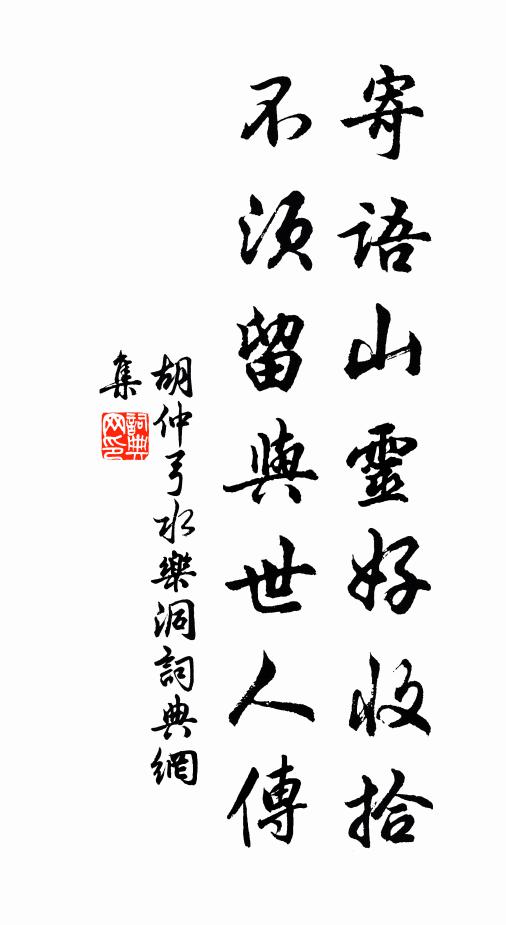 寄語山靈好收拾
不須留與世人傳
胡仲弓水樂洞詞典網
集
詞典网印